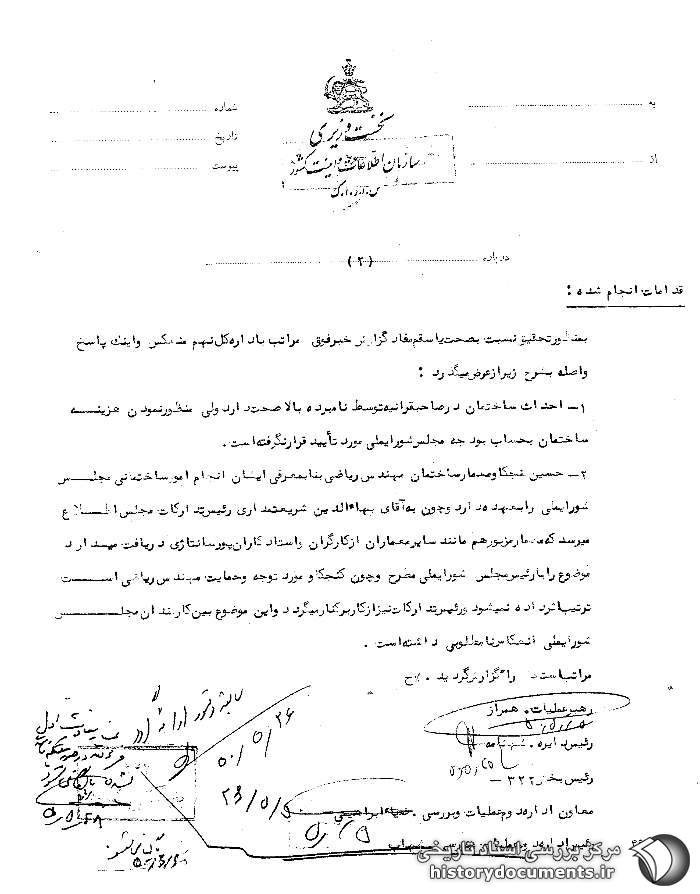 نخست وزیری
سازمان اطلاعات و امنیت کشور
س.ا.و.ا.ک
به
از
شماره
تاریخ
پیوست
درباره (۲)
قدامات انجام شده :
بمنظور تحقیق نسبت بصحت یا سقم مفاد گزارش خبر فوق مراتب باداره کل نهم منعکس و اینک پاسخ
واصله بشرح زیر از عرض میگذرد :
۱- احداث ساختمان در صاحبقرانیه توسط نامبرده بالا صحت دارد ولی منظور نمودن هزینه
ساختمان بحساب بودجه مجلس شورایملی مورد تأیید قرار نگرفته است .
۲- حسین کنجکاو معمار ساختمان مهندس ریاضی بنا بمعرفی ایشان انجام امور ساختمانی مجلس
شورایملی را بعهده دارد و چون به آقای بهاءالدین شریعتمداری رئیس تدارکات مجلس اطلاع
میرسد که معمار مزبور هم مانند سایر معماران از کارگران و استادکاران پورسانتاژی دریافت میدارد
موضوع را با رئیس مجلس شورایملی مطرح و چون کنجکاو مورد توجه و حمایت مهندس ریاضی است
ترتیب اثر داده نمیشود و رئیس تدارکات نیز از کار برکنار میگردد و این موضوع بین کارمندان مجلس
شورایملی انعکاس نامطلوبی داشته است .
مراتب استحضارا گزارش گردید . ح
رهبر عملیات . همراز
رئیس دایره .
رئیس بخش ۳۲۲ -
معاون اداره دوم عملیات و بررسی . ضیاء ابراهیمی
رئیس اداره دوم عملیات و بررسی
۵۰/۵/۲۶
مرکز بررسی اسناد تاریخی
historydocuments.ir